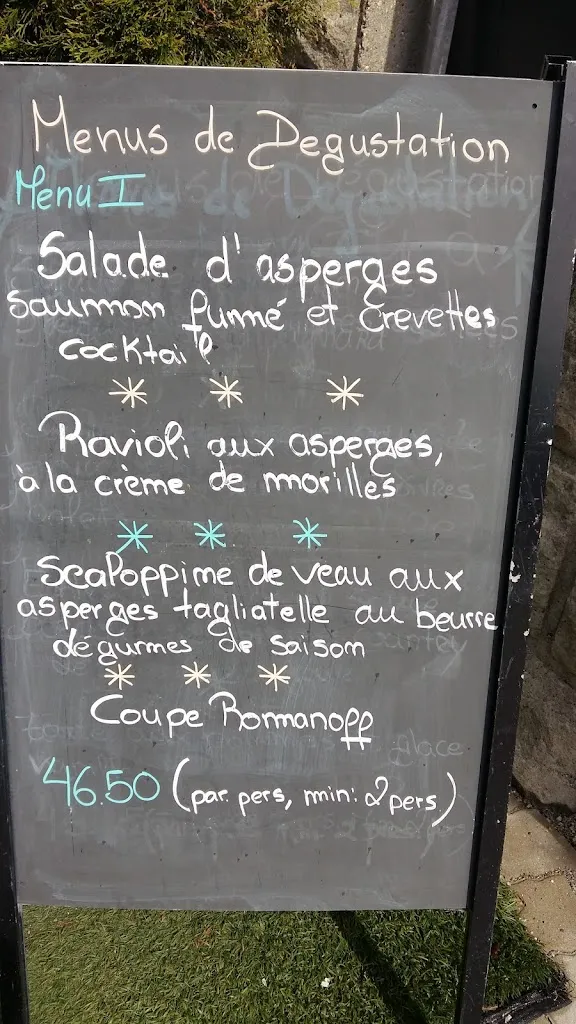 Menus de Degustation
Menu I
Salade d'asperges
saumon fumé et crevettes
cocktail
Ravioli aux asperges,
à la crème de morilles
Scaloppine de veau aux
asperges tagliatelle au beurre
dégumes de saison
Coupe Romanoff
46.50 (par. pers, min: 2 pers)